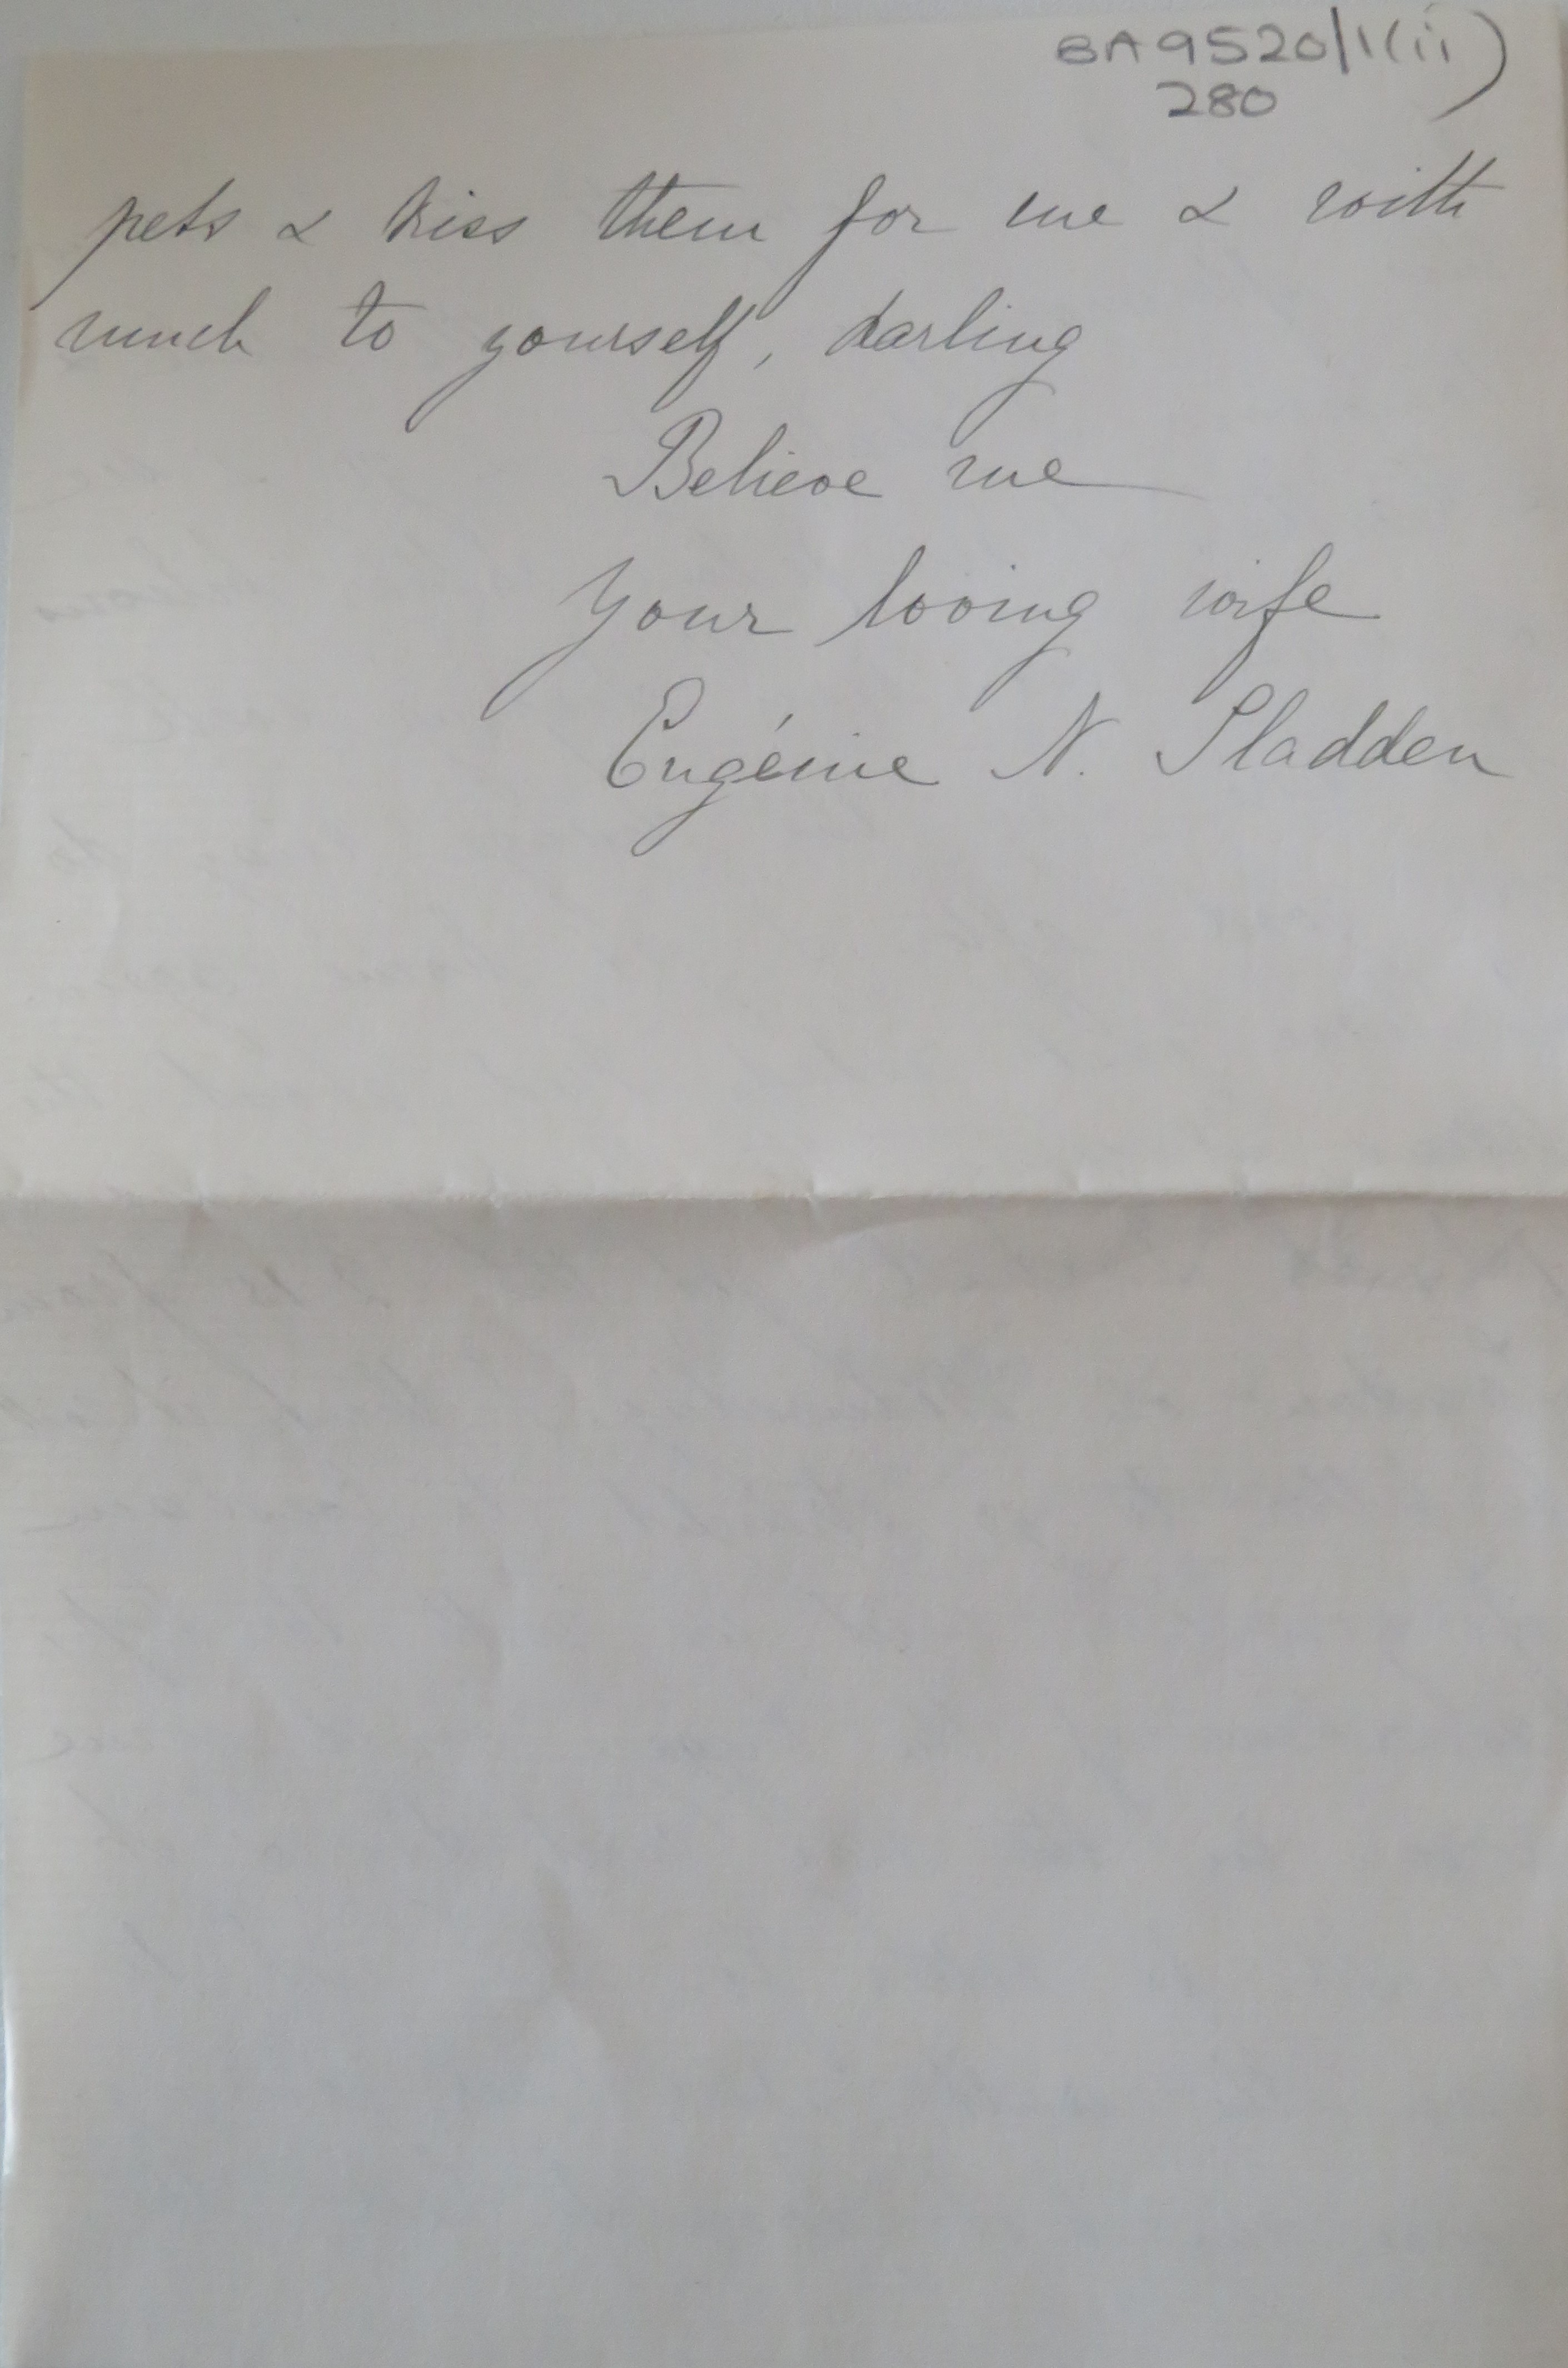 BA9520/1(ii)
280
pets & kiss them for me & with
much to yourself, darling
Believe me
Your loving wife
Eugénie N. Sladden